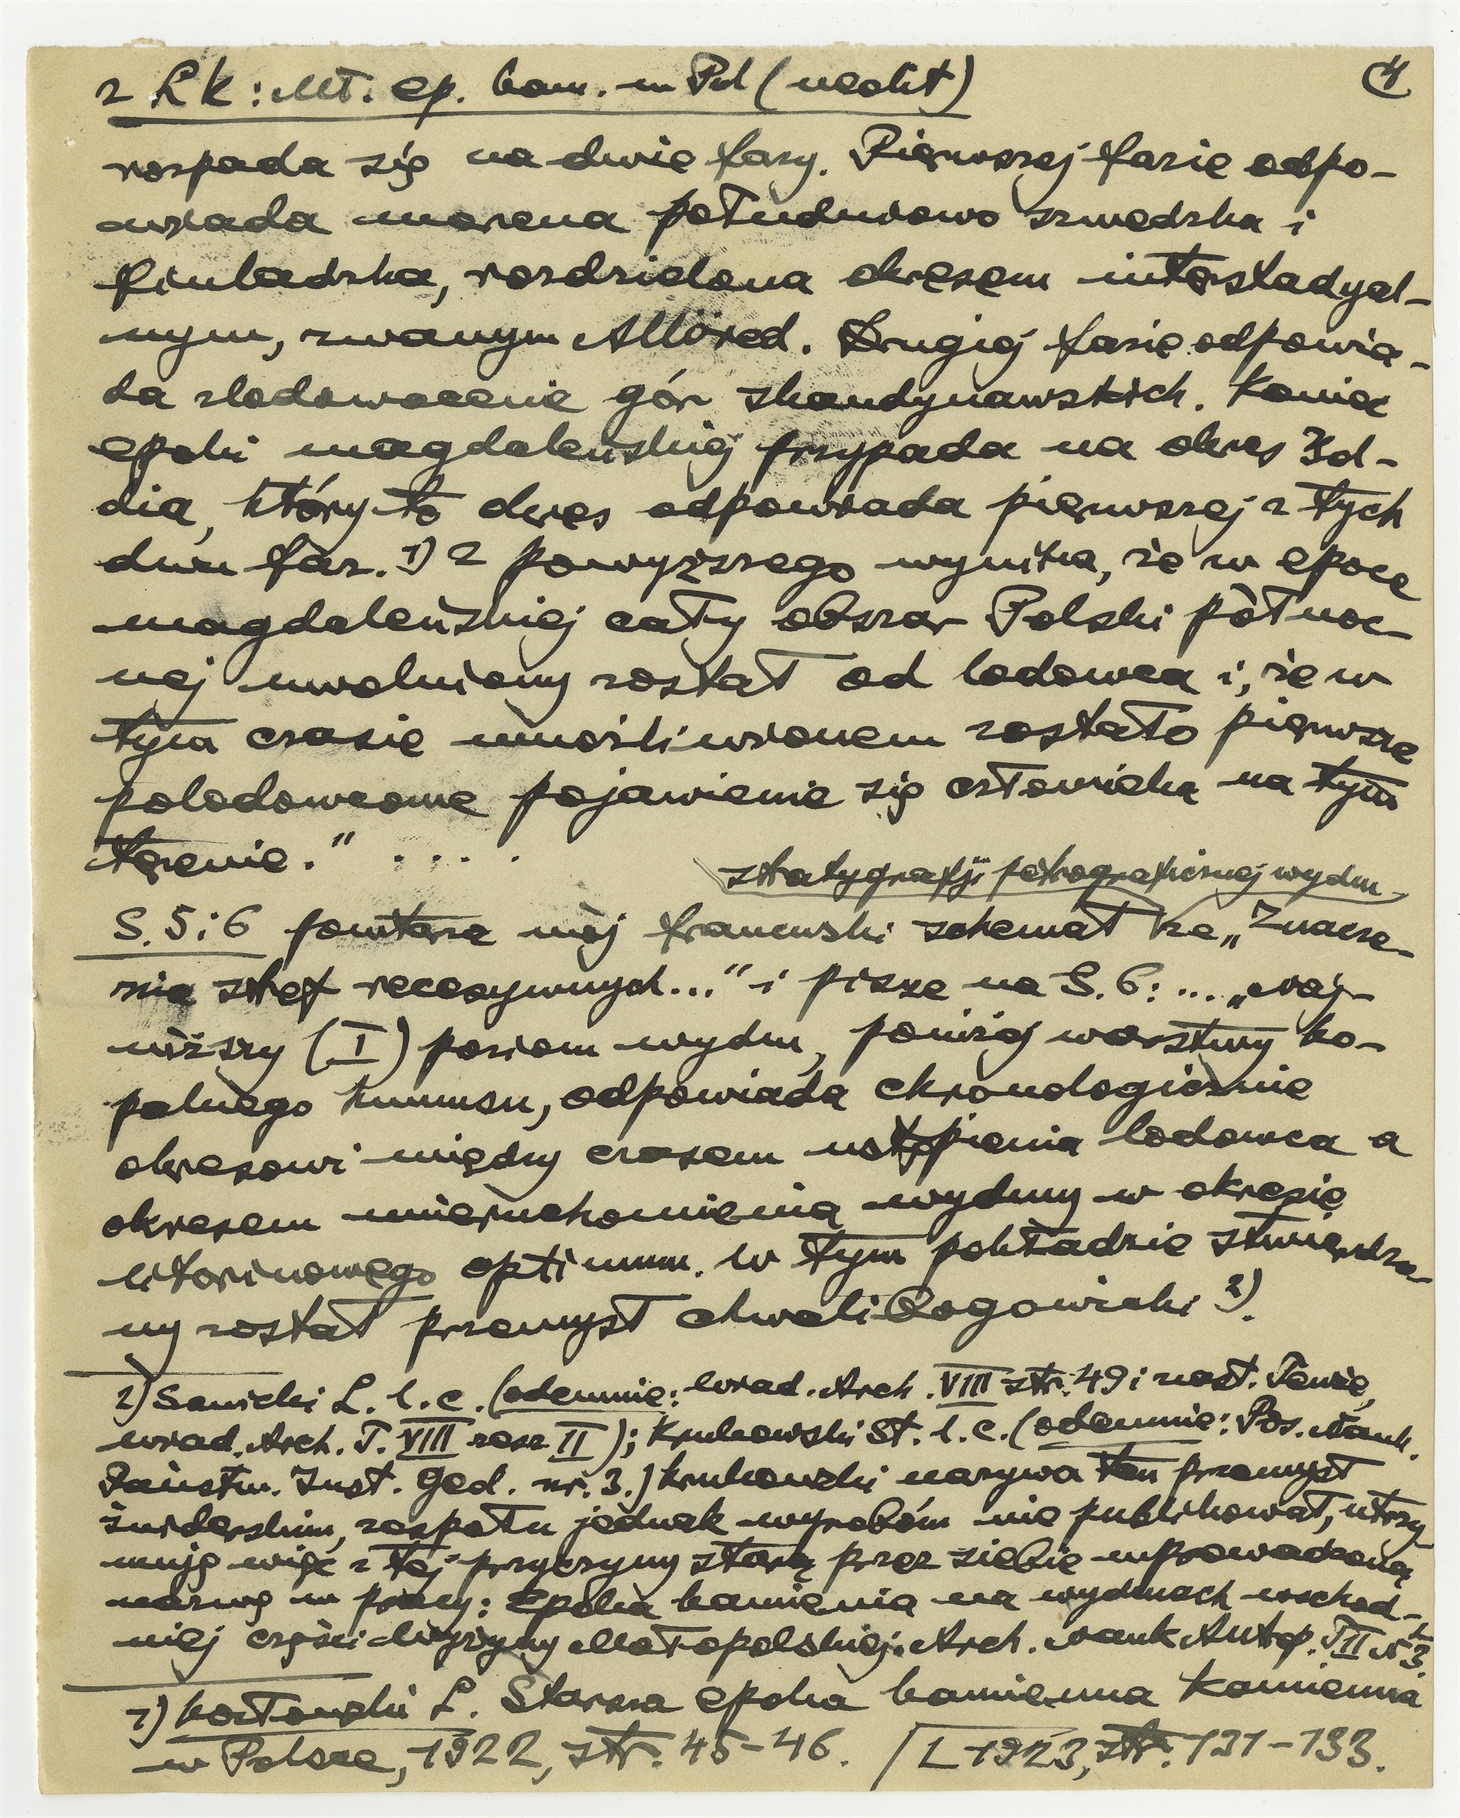 z LK: Mł. ep. kam. w Pol (neolit)
4
rozpada się na dwie fazy. Pierwszej fazie odpo-
wiada morena południowo szwedzka i
finladzka, rozdzielona okresem interstadyal-
nym, zwanym Alleröd. Drugiej fazie odpowia-
da zlodowacenie gór skandynawskich. Koniec
epoki magdaleńskiej przypada na okres Yol-
dia, który to okres odpowiada pierwszej z tych
dwu faz. 1) Z powyższego wynika, że w epoce
magdaleńskiej cały obszar Polski północ-
nej uwolniony został od lodowca i, że w
tym czasie umożliwionem zostało pierwsze
polodowcowe pojawienie się człowieka na tym
terenie." . . . .
statygrafji petrograficznej wydm
S. 5 i 6 powtarza mój francuski schemat ze „Znacze-
nie stref recesywnych..." i pisze na S. 6: ... „Naj-
niższy (I) poziom wydm, poniżej warstwy ko-
palnego humusu, odpowiada chronologicznie
okresowi między czasem ustąpienia lodowca a
okresem unieruchomienia wydmy w okresie
litorinowego optimum. W tym pokładzie stwierdzo-
ny został przemysł chwalibogowicki 2).
2) Sawicki L. l. c. (odemnie: Wiad. Arch. VIII str. 49 i nast. Tenże,
Wiad. Arch. T. VIII zesz II); Krukowski St. l. c. (odemnie: Pos. Nauk.
Państw. Inst. Geol. nr. 3.) Krukowski nazywa ten przemysł
świderskim, zespołu jednak wyrobów nie publikował, utrzy-
muję więc z tej przyczyny starą przez siebie wprowadzoną
nazwę w pracy: Epoka kamienia na wydmach wschod-
niej części Wyżyny Małopolskiej. Arch. Nauk Antrop. T II № 3.
1) Kozłowski L. Starsza epoka kamienna
w Polsce, 1922, str. 45-46. [L 1923, str. 131-133.